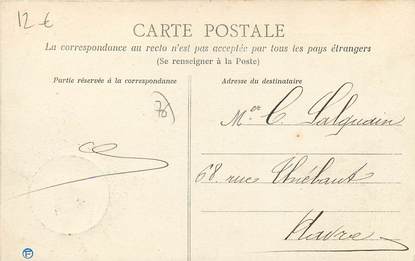 12 €
CARTE POSTALE
La correspondance au recto n'est pas acceptée par tous les pays étrangers
(Se renseigner à la Poste)
Partie réservée à la correspondance
Adresse du destinataire
76
Mer C. Lalquain
68. rue Thiébaut
Havre